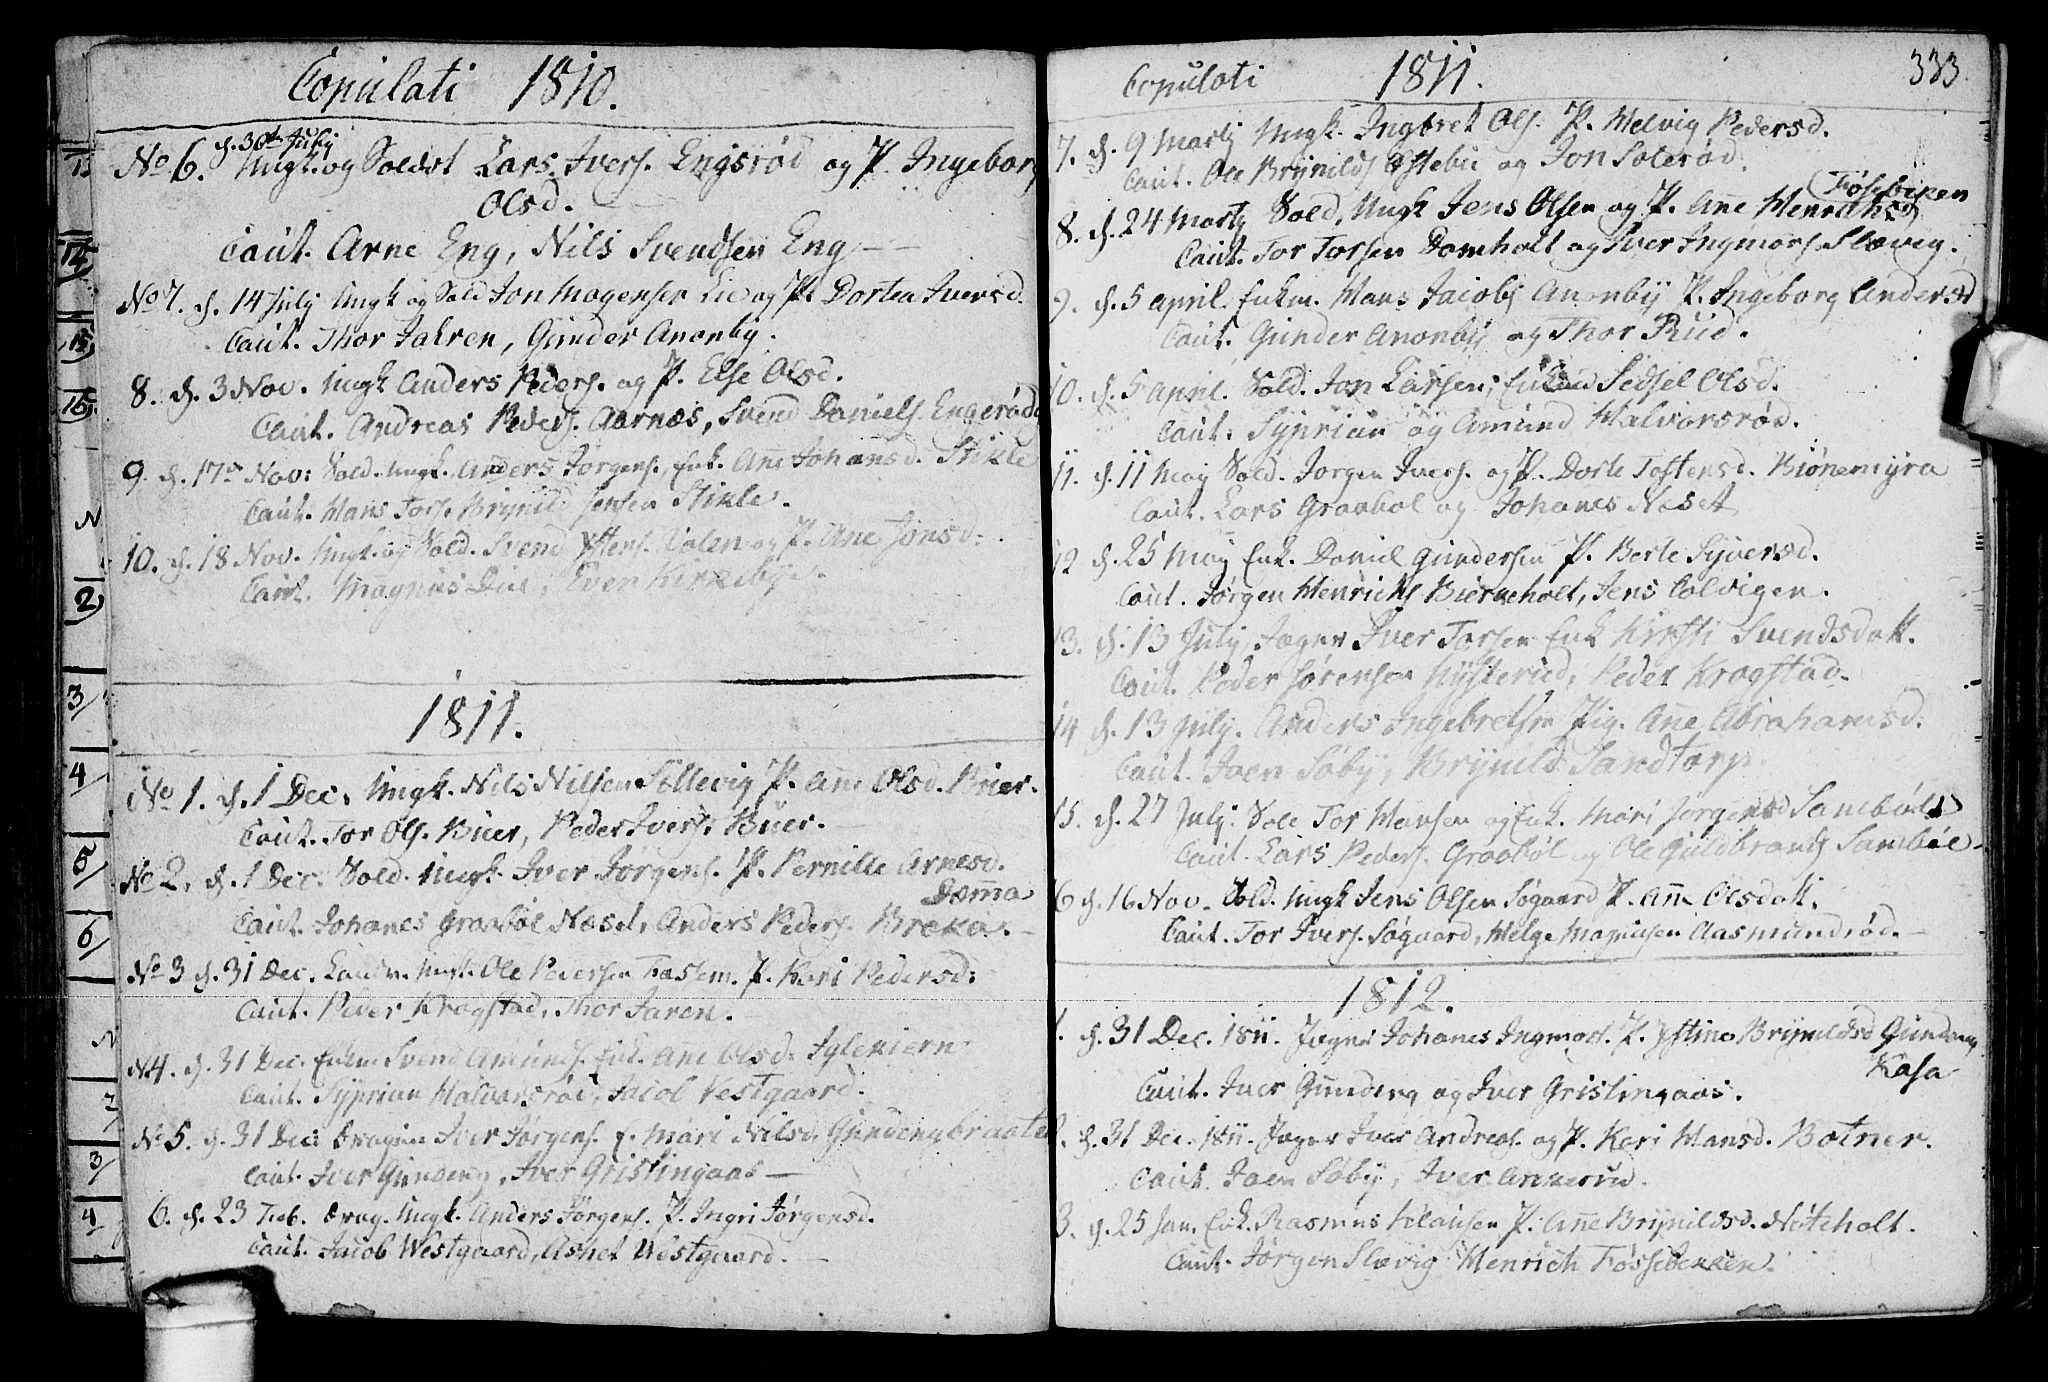 Copulati 1810.
No 6. d. 30te Juny Ungk. og Soldat Lars Ivers. Engsrød og P. Ingeborg
Olsd.
Caut. Arne Eng, Nils Svendsen Eng
No 7. d. 14 July Ungk og Sold Jon Mogensen Lie og P. Dortea Iversd.
Caut. Thor Jahren, Gunder Anonby.
8. d. 3 Nov. Ungk Anders Peders. og P. Else Olsd.
Caut. Andreas Peders. Aarnæs, Svend Daniels. Engerød
9. d. 17de Nov: Sold. Ungk. Anders Jørgens., Enk. Ane Johansd. Stikle
Caut. Hans Tors. Brynild Jensen Stikle.
10. d. 18 Nov. Ungk. og Sold. Svend Ystens. Dalen og P. Ane Jonsd.
Caut. Magnus Due, Even Kirkebye.
1811.
No 1. d. 1 Dec. Ungk. Nils Nilsen Sollevig P. Ane Olsd. Buer.
Caut. Tor Ols. Buer, Peder Ivers. Buer.
No 2. d. 1 Dec. Sold. Ungk. Iver Jørgens. P. Pernille Arnesd.
Damma
Caut. Johanes Graabøl Næset, Anders Peders. Breka.
No 3 d. 31 Dec. Landv. Ungk. Ole Pedersen Fastem. P. Kari Pedersd:
Caut. Peder Kragstad, Thor Jaren.
N4. d. 31 Dec. Enkm Svend Amunds. Enk. Ane Olsd. Iglekiern
Caut. Syprian Halvorsrød, Jacob Vestgaard.
No 5. d. 31 Dec: Dragun Iver Jørgens. E. Mari Nilsd. Gundengbraaten
Caut. Iver Gundeng, Iver Grislingaas
6. d. 23 Feb. Drag. Ungk. Anders Jørgens. P. Ingri Jørgensd.
Caut. Jacob Westgaard, Asher Westgaard.
Copulati 1811. 333.
7. d. 9 Martj Ungk. Ingbret Ols. P. Helvig Pedersd.
Caut. Ole Brynilds Østebu og Jon Solerød.
8. d. 24 Martj Sold, Ungk Jens Olsen og P. Ane Henrichsd (Føsebeken
Caut. Tor Torsen Domholt og Iver Ingmors. Slævig.
9. d. 5 April Enkm. Hans Jacobs Anonby P. Ingeborg Andersd
Caut. Gunder Anonby og Thor Rud.
10. d. 5 April. Sold. Jon Larsen; Enk Sidsel Olsd.
Caut. Syprian og Amund Halvorsrød.
11. d. 11 May Sold. Jørgen Ivers. og P. Dorte Tostensd. Biønemyra
Caut. Lars Graabøl og Johanes Næset
12 d. 25 May Enk. Daniel Gundersen P. Berte Syversd.
Caut. Jørgen Henrichs Bierkeholt, Jens Colvigen.
13. d. 13 July, Jæger Iver Torsen Enk Kirsti Svendsdatt.
Caut. Peder Sørensen Hysterud, Peder Kragstad.
14 d. 13 July. Anders Ingebretsen Pig. Ane Abrahamsd.
Caut. Joen Søby, Brynild Sandtorp.
15. d. 27 July: Sole Tor Hansen og Enk. Mari Jørgensd Sambøl
Caut. Lars Peders. Graabøl og Ole Guldbrands Sambøl
6 d. 16 Nov. Sold. Ungk Jens Olsen Søgaard P. Ane Olsdatt.
Caut. Tor Ivers. Søgaard, Helge Magnusen Aasmundrød.
1812.
1. d. 31 Dec. 1811. Jæger Johanes Ingmors. P. Ystine Brynildsd Gundeng
Kasa
Caut. Iver Gundeng og Iver Grislingaas.
2. d. 31 Dec. 1811. Jæger Iver Andreas. og P. Kari Hansd. Botner.
Caut. Joen Søby, Iver Ankerud.
3. d. 25 Jan. Enk. Rasmus Klausen P. Ane Brynildsd. Nøteholt.
Caut. Jørgen Slævig Henrich Føssebekken.